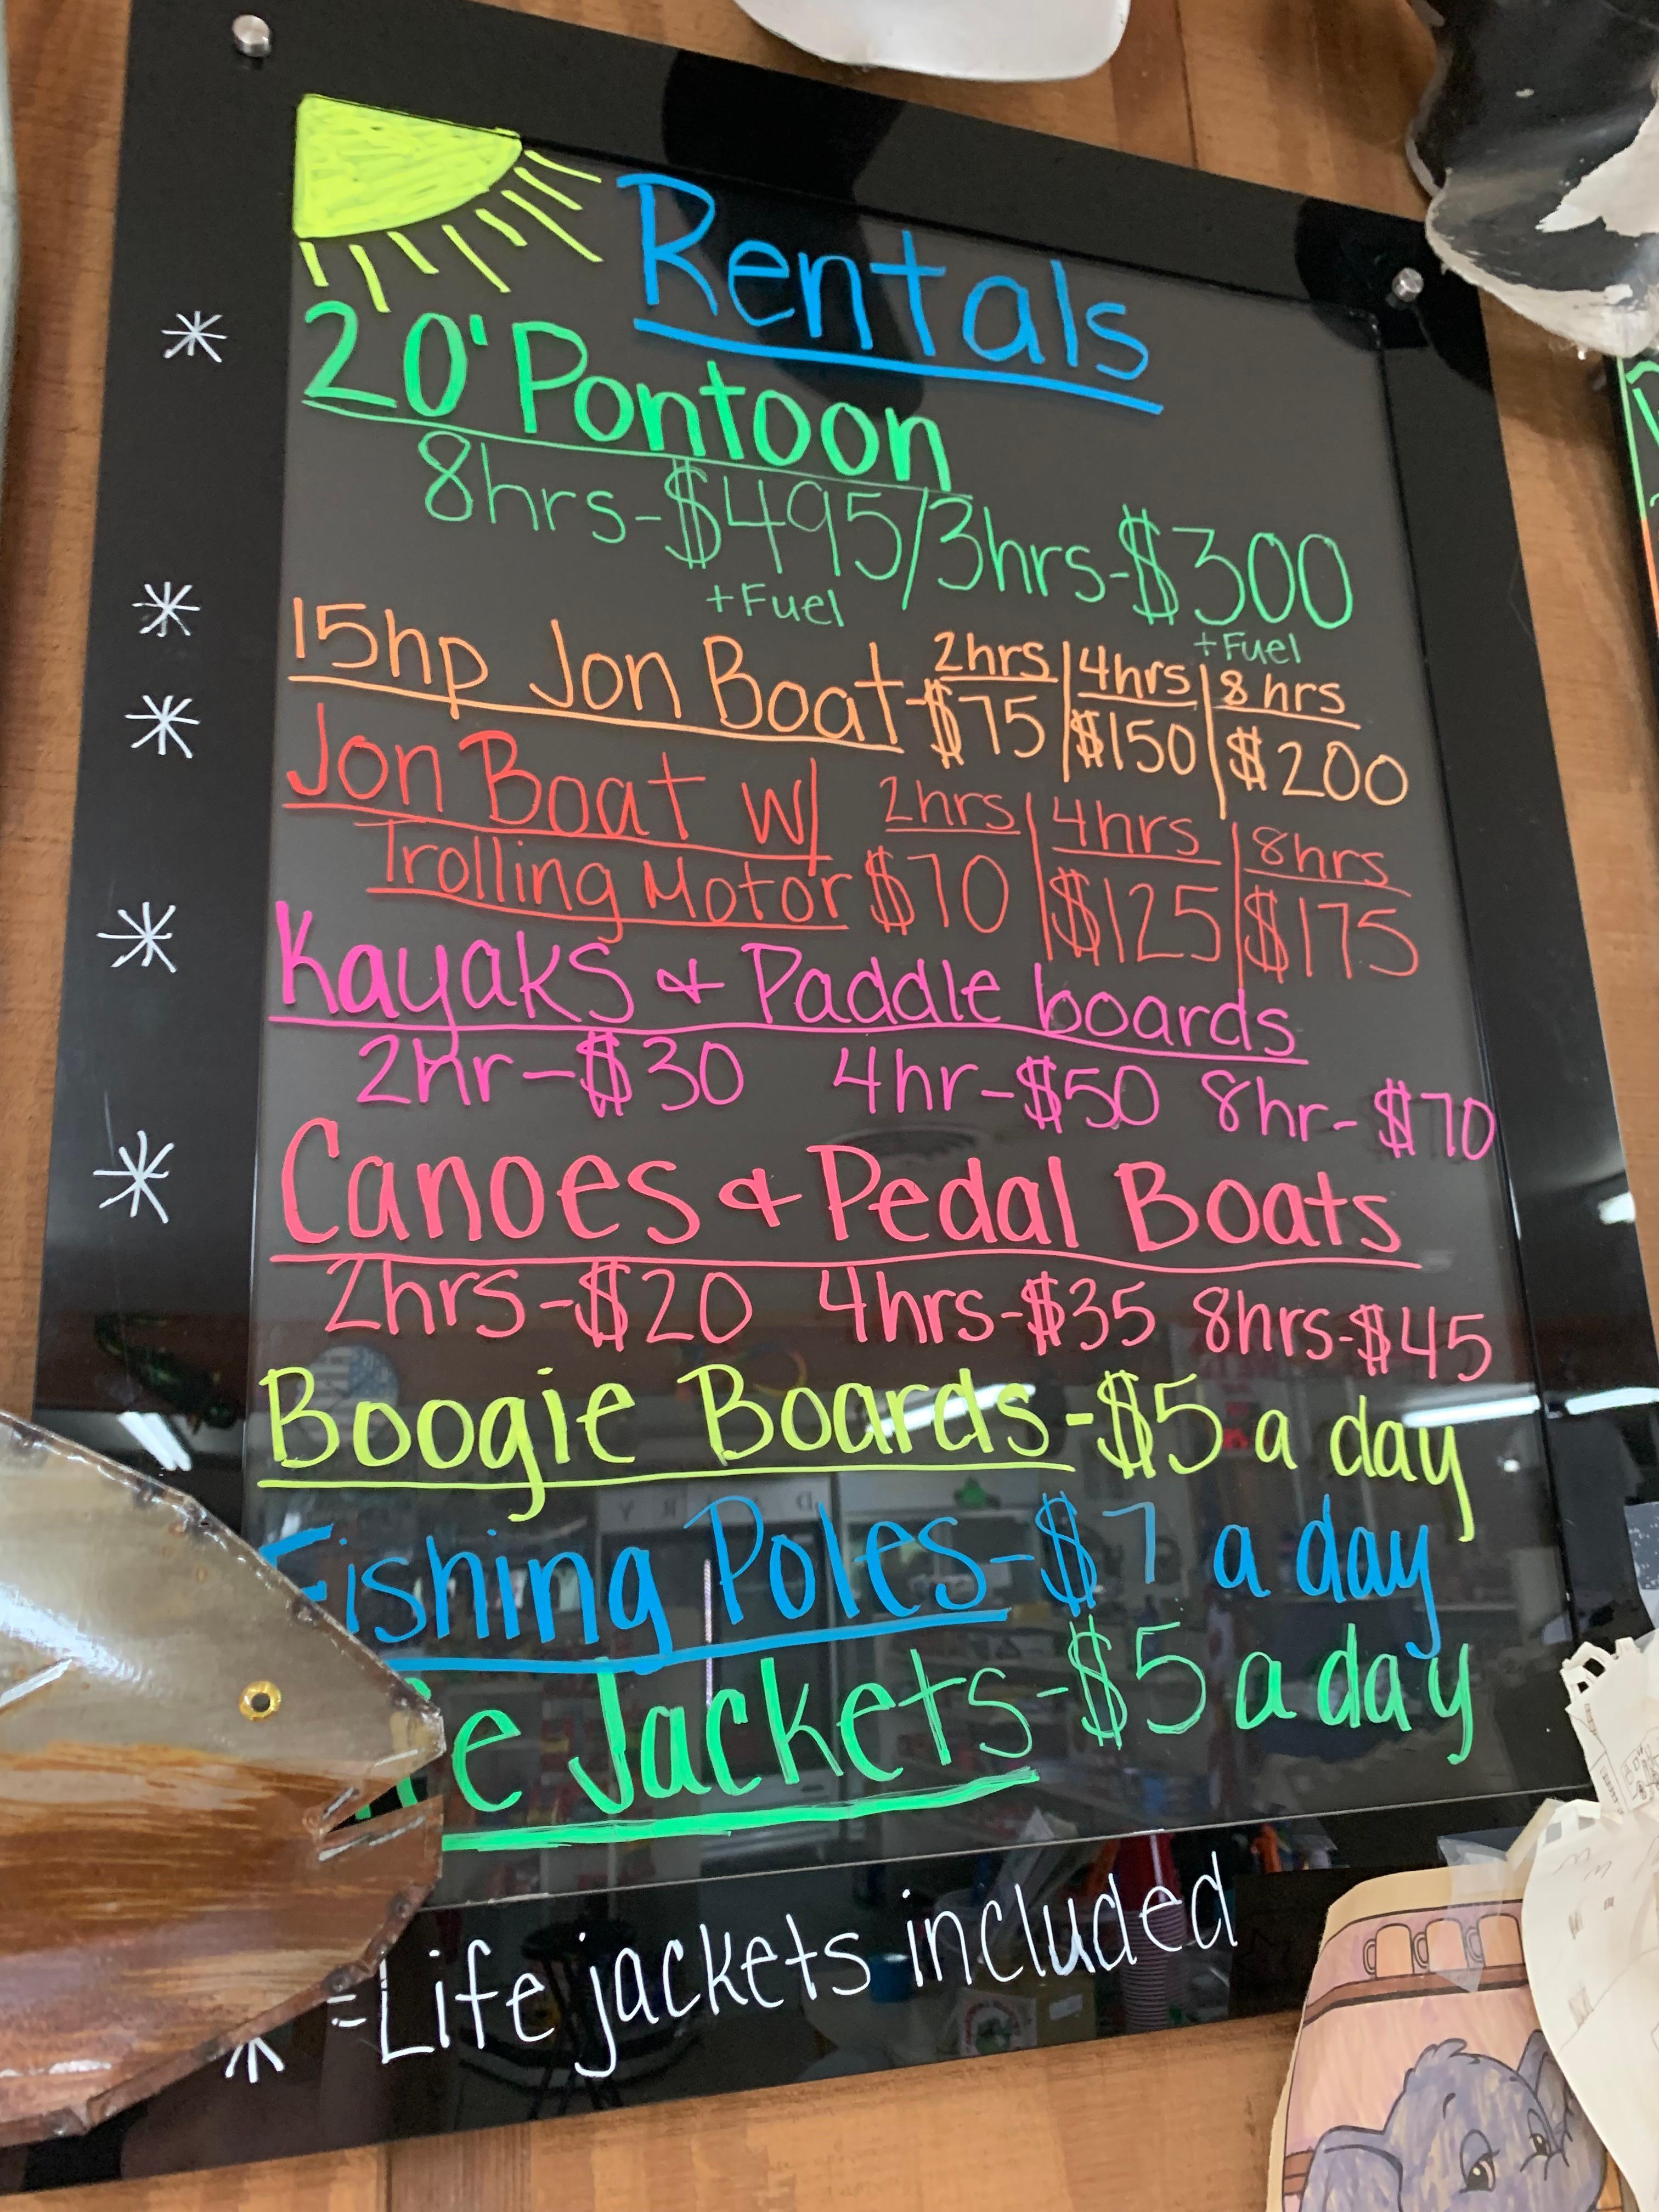 Rentals
* 20' Pontoon
8hrs-$495/3hrs-$300
+Fuel +Fuel
* 15hp Jon Boat- 2hrs | 4hrs | 8 hrs
$75 | $150 | $200
* Jon Boat w/ 2hrs | 4hrs | 8hrs
Trolling Motor $70 | $125 | $175
* Kayaks & Paddle boards
2hr-$30 4hr-$50 8hr-$70
* Canoes & Pedal Boats
2hrs-$20 4hrs-$35 8hrs-$45
Boogie Boards-$5 a day
Fishing Poles-$7 a day
Jackets-$5 a day
* =Life jackets included